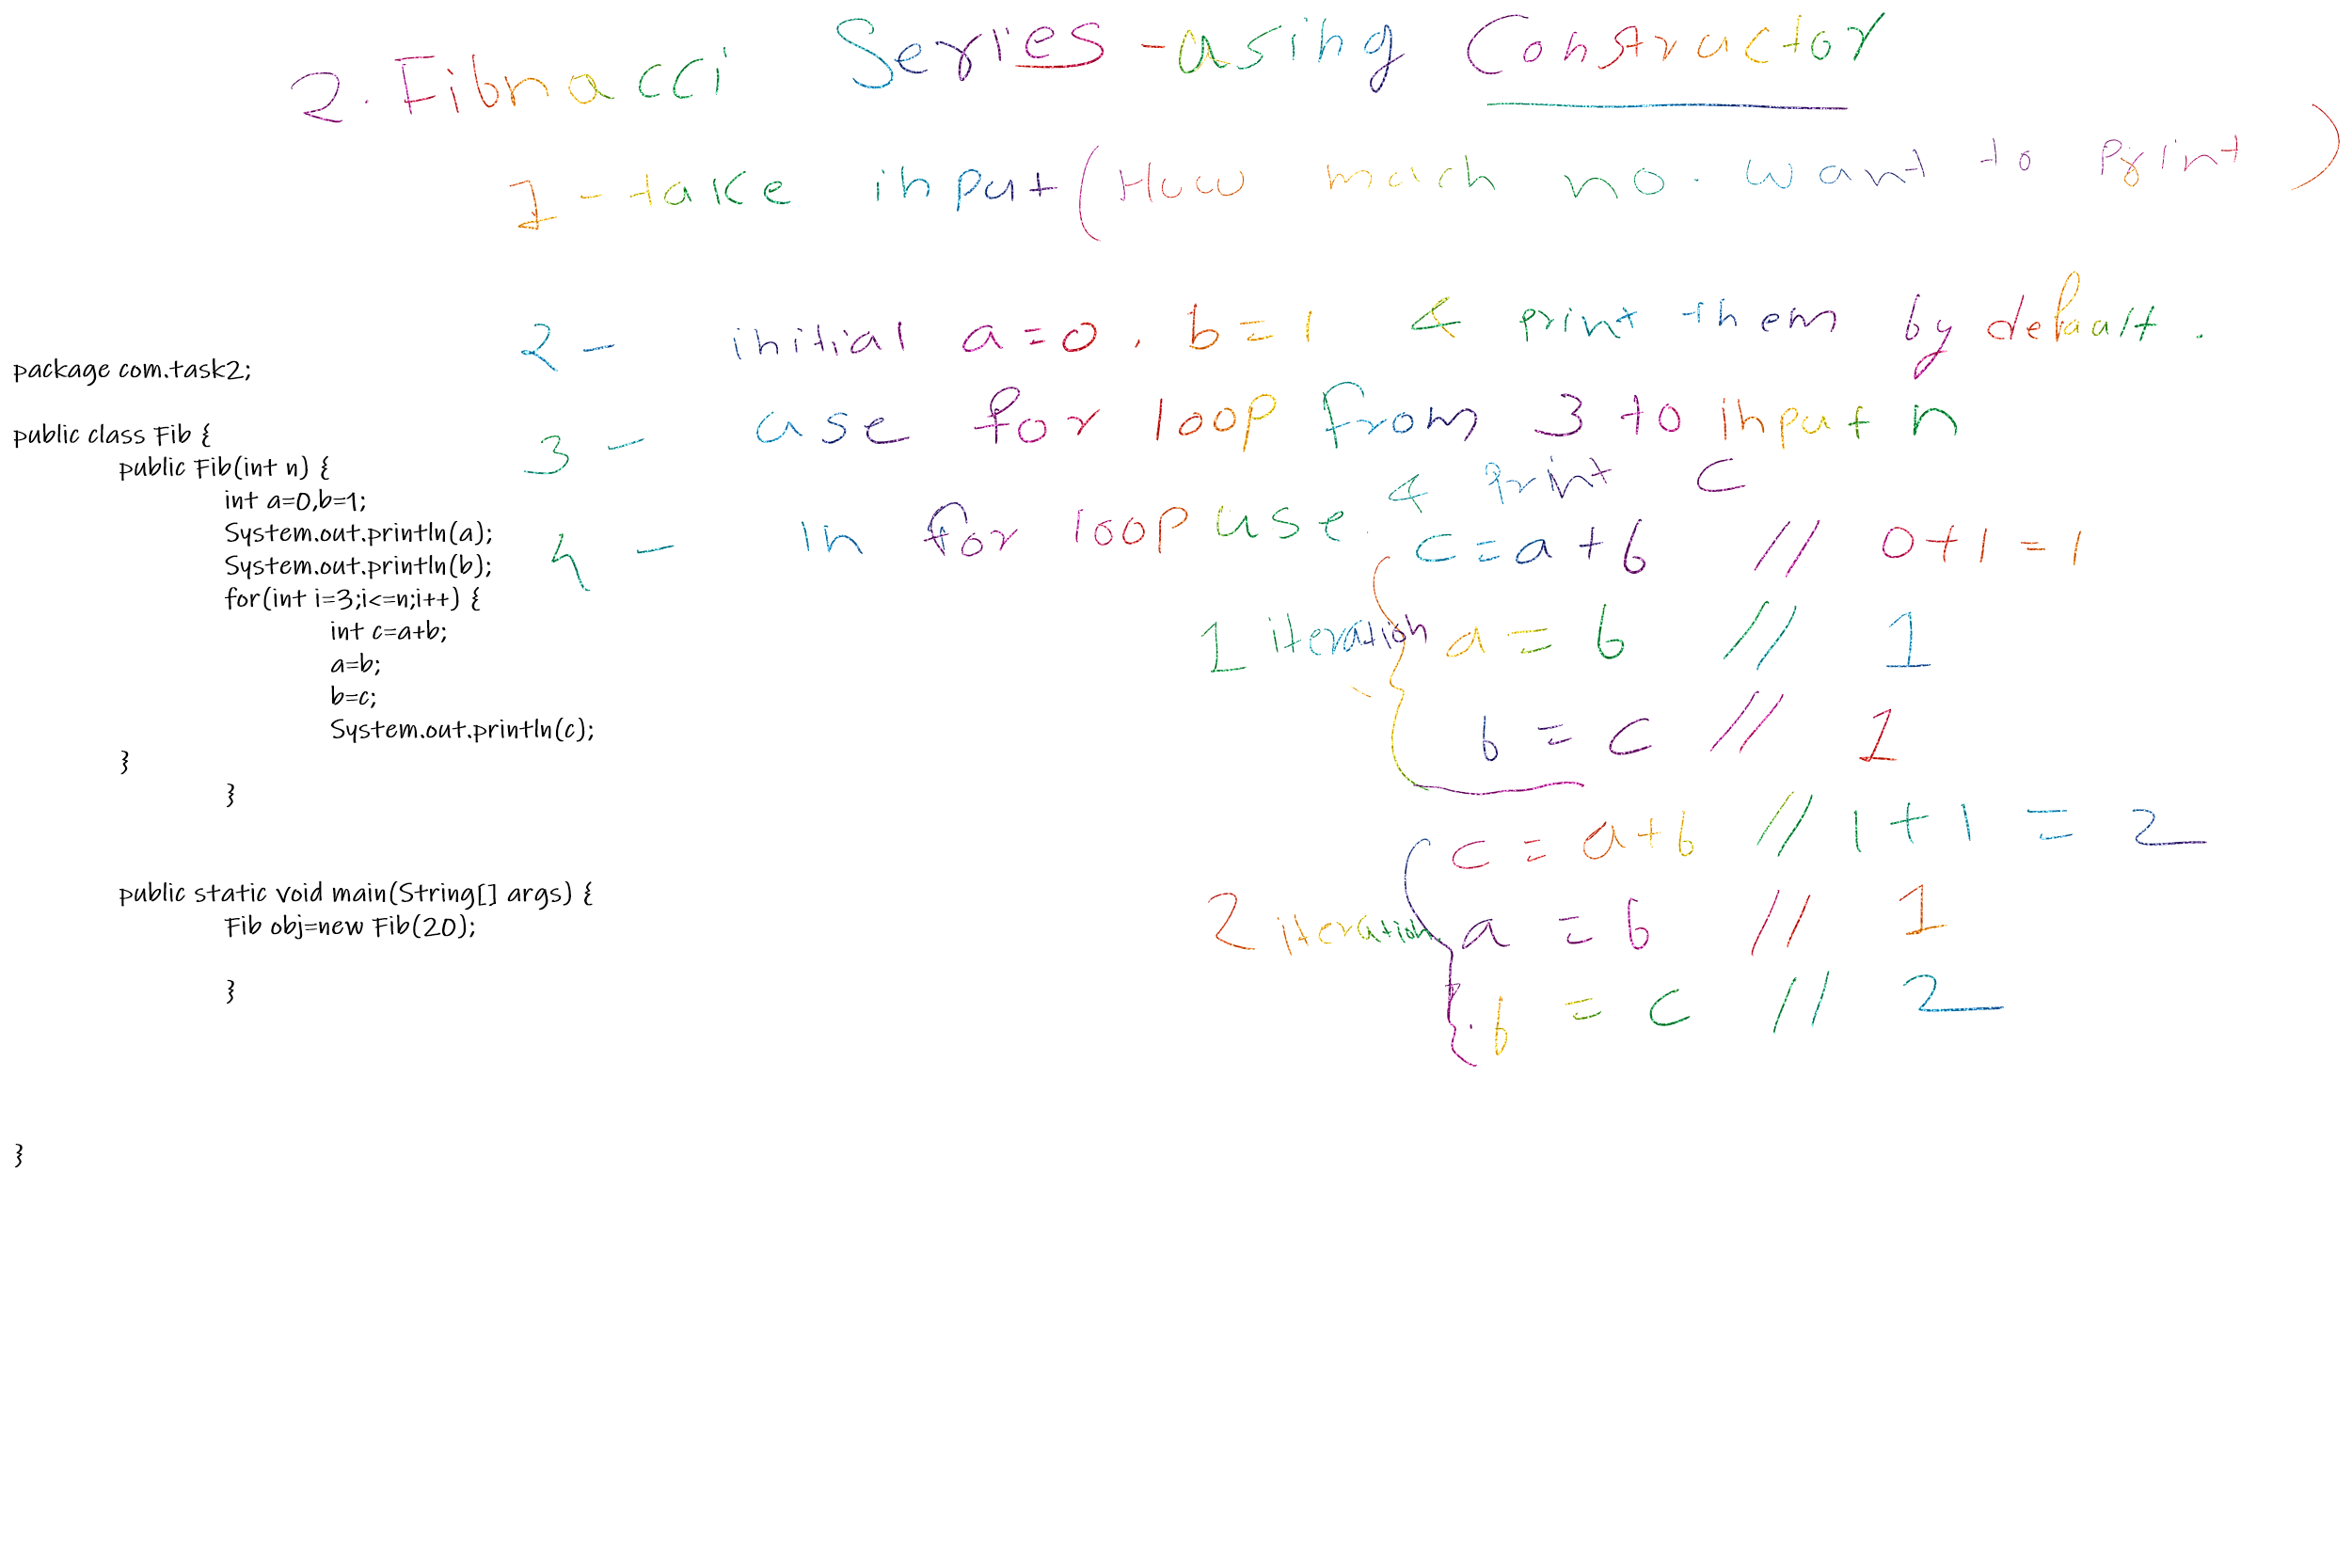 2. Fibnacci Series - using Constructor
1 - take input (How much no. want to print)
2 - initial a=0, b=1 & print them by default.
3 - use for loop from 3 to input n
4 - in for loop use & print c
c=a+b // 0+1=1
1 iteration a=b // 1
b=c // 1
c=a+b // 1+1=2
2 iteration a=b // 1
b=c // 2
package com.task2;
public class Fib {
public Fib(int n) {
int a=0,b=1;
System.out.println(a);
System.out.println(b);
for(int i=3;i<=n;i++) {
int c=a+b;
a=b;
b=c;
System.out.println(c);
}
}
public static void main(String[] args) {
Fib obj=new Fib(20);
}
}